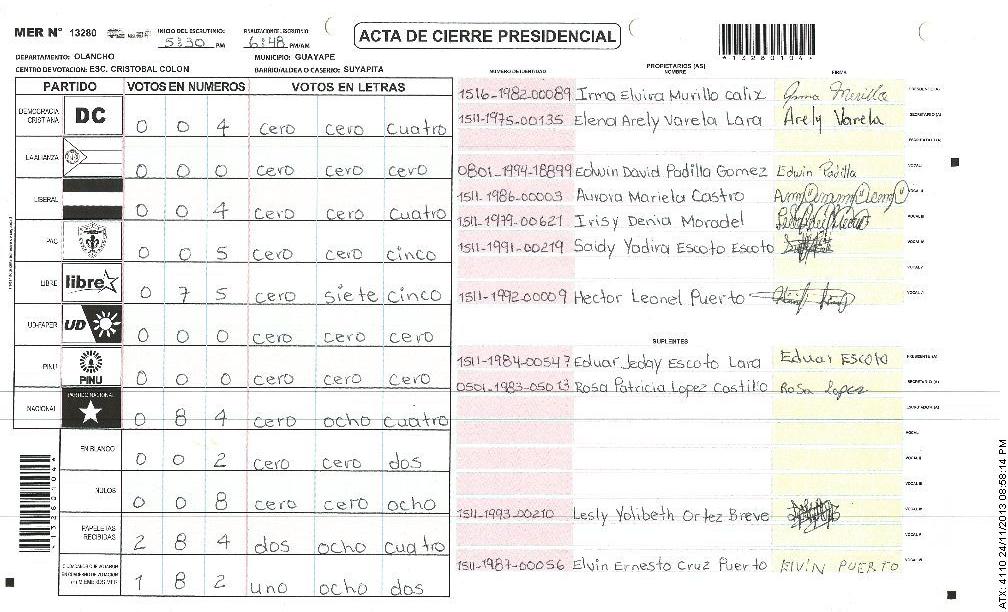 MER N° 13280
INICIO DEL ESCRUTINIO: 5:30 PM
FINALIZACION DEL ESCRUTINIO: 6:48 PM/AM
ACTA DE CIERRE PRESIDENCIAL
*13280104*
DEPARTAMENTO: OLANCHO
MUNICIPIO: GUAYAPE
CENTRO DE VOTACION: ESC. CRISTOBAL COLON
BARRIO/ALDEA O CASERIO: SUYAPITA
PARTIDO VOTOS EN NUMEROS VOTOS EN LETRAS
DEMOCRACIA CRISTIANA DC 0 0 4 cero cero cuatro
LA ALIANZA 0 0 0 cero cero cero
LIBERAL 0 0 4 cero cero cuatro
PAC 0 0 5 cero cero cinco
LIBRE libre 0 7 5 cero siete cinco
UD-FAPER UD 0 0 0 cero cero cero
PINU PINU 0 0 0 cero cero cero
NACIONAL PARTIDO NACIONAL 0 8 4 cero ocho cuatro
EN BLANCO 0 0 2 cero cero dos
NULOS 0 0 8 cero cero ocho
PAPELETAS RECIBIDAS 2 8 4 dos ocho cuatro
1 8 2 uno ocho dos
*13280104*
NUMERO DE IDENTIDAD
PROPIETARIOS (AS)
NOMBRE
FIRMA
1516-1982-00089 Irma Elvira Murillo calix Irma Murillo PRESIDENTE (A)
1511-1975-00135 Elena Arely Varela Lara Arely Varela SECRETARIO (A)
ESCRUTADOR (A)
0801-1994-18899 Edwin David Padilla Gomez Edwin Padilla VOCAL I
1511-1986-00003 Aurora Mariela Castro VOCAL II
1511-1979-00621 Irisy Denia Moradel VOCAL III
1511-1991-00219 Saidy Yadira Escoto Escoto VOCAL IV
VOCAL V
1511-1992-00009 Hector Leonel Puerto
SUPLENTES
1511-1984-00547 Eduar Jeday Escoto Lara Eduar Escoto PRESIDENTE (A)
0501-1983-05013 Rosa Patricia Lopez Castillo Rosa Lopez SECRETARIO (A)
ESCRUTADOR (A)
VOCAL I
VOCAL II
VOCAL III
1511-1993-00210 Lesly Yolibeth Ortez Breve VOCAL IV
VOCAL V
1511-1987-00056 Elvin Ernesto Cruz Puerto ELVIN PUERTO
ATX: 4110 24/11/2013 08:58:14 PM